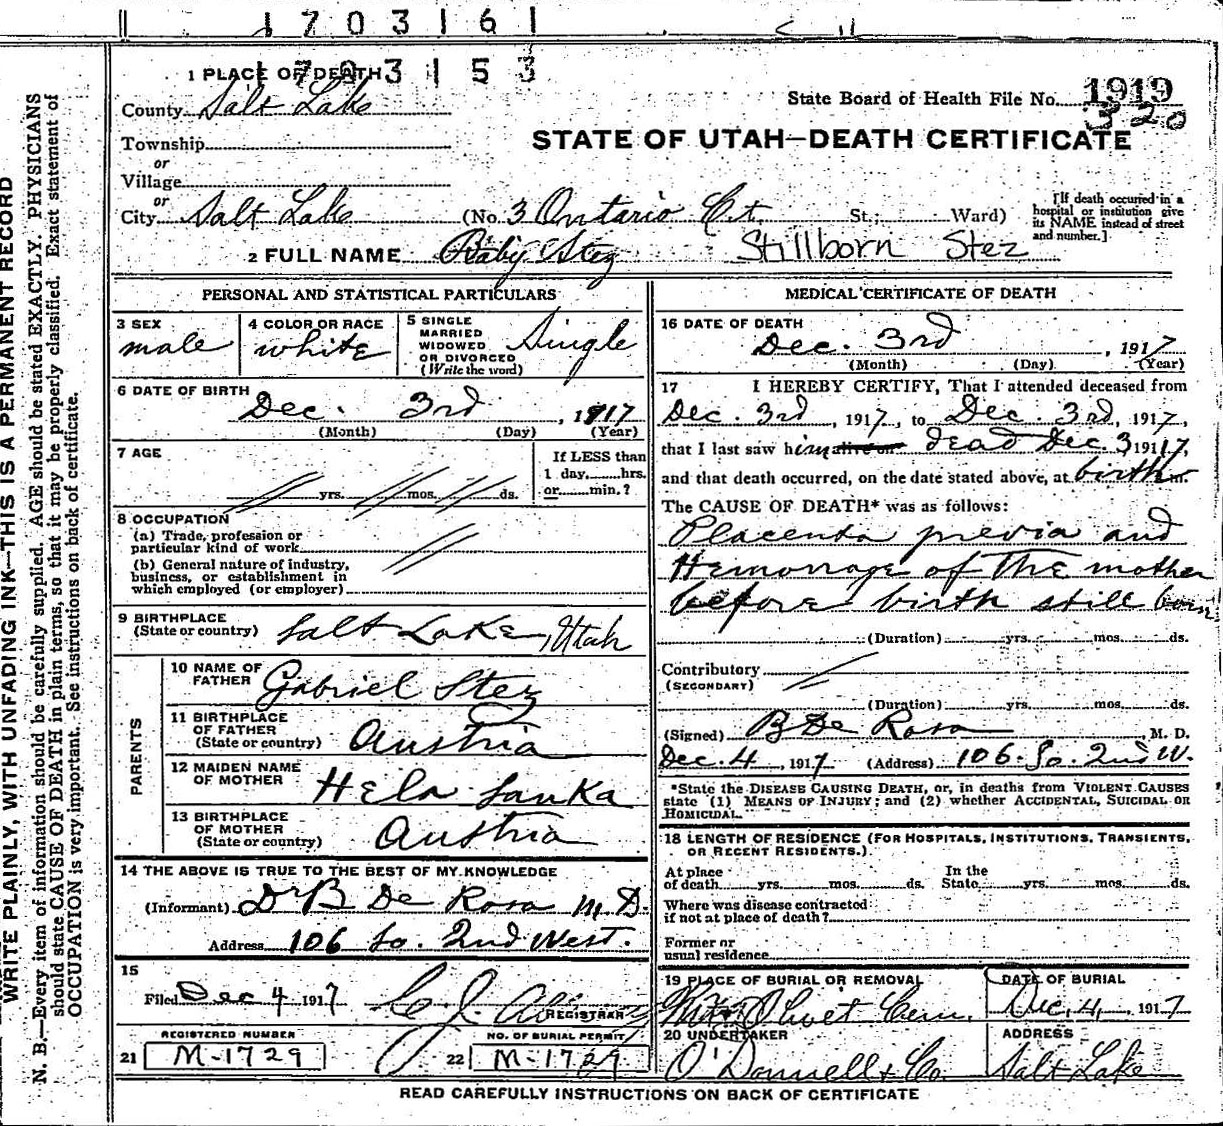 1703161
1703153
1 PLACE OF DEATH
County Salt Lake
State Board of Health File No. 1919
320
Township
STATE OF UTAH—DEATH CERTIFICATE
or
Village
or
City Salt Lake (No. 3 Ontario Ct. St.; Ward)
[If death occurred in a hospital or institution give its NAME instead of street and number.]
2 FULL NAME Baby Stez Stillborn Stez
PERSONAL AND STATISTICAL PARTICULARS
3 SEX
male
4 COLOR OR RACE
white
5 SINGLE
MARRIED
WIDOWED
OR DIVORCED
(Write the word)
Single
6 DATE OF BIRTH
Dec. 3rd, 1917
(Month) (Day) (Year)
7 AGE
If LESS than
1 day, hrs.
or min.?
yrs. mos. ds.
8 OCCUPATION
(a) Trade, profession or
particular kind of work
(b) General nature of industry,
business, or establishment in
which employed (or employer)
9 BIRTHPLACE
(State or country) Salt Lake, Utah
PARENTS
10 NAME OF
FATHER Gabriel Stez
11 BIRTHPLACE
OF FATHER
(State or country) Austria
12 MAIDEN NAME
OF MOTHER Hela Lanka
13 BIRTHPLACE
OF MOTHER
(State or country) Austria
14 THE ABOVE IS TRUE TO THE BEST OF MY KNOWLEDGE
(Informant) Dr B De Rosa M.D.
Address 106 So. 2nd West.
15
Filed Dec 4 1917
REGISTRAR
REGISTERED NUMBER
21 M-1729
NO. OF BURIAL PERMIT
22 M-1729
MEDICAL CERTIFICATE OF DEATH
16 DATE OF DEATH
Dec. 3rd, 1917
(Month) (Day) (Year)
17 I HEREBY CERTIFY, That I attended deceased from
Dec. 3rd, 1917, to Dec. 3rd, 1917,
that I last saw him alive on dead Dec. 3 1917,
and that death occurred, on the date stated above, at birth m.
The CAUSE OF DEATH* was as follows:
Placenta previa and
Hemorrage of The mother
before birth still born
(Duration) yrs. mos. ds.
Contributory
(SECONDARY)
(Duration) yrs. mos. ds.
(Signed) B De Rosa, M. D.
Dec. 4, 1917 (Address) 106. So. 2nd W.
*State the DISEASE CAUSING DEATH, or, in deaths from VIOLENT CAUSES
state (1) MEANS OF INJURY; and (2) whether ACCIDENTAL, SUICIDAL OR
HOMICIDAL.
18 LENGTH OF RESIDENCE (FOR HOSPITALS, INSTITUTIONS, TRANSIENTS,
OR RECENT RESIDENTS.)
At place
of death yrs. mos. ds.
In the
State yrs. mos. ds.
Where was disease contracted
if not at place of death?
Former or
usual residence
19 PLACE OF BURIAL OR REMOVAL
Mt. Olivet Cem.
DATE OF BURIAL
Dec. 4, 1917
20 UNDERTAKER
O'Donnell & Co.
ADDRESS
Salt Lake
READ CAREFULLY INSTRUCTIONS ON BACK OF CERTIFICATE
WRITE PLAINLY, WITH UNFADING INK—THIS IS A PERMANENT RECORD
N. B.—Every item of information should be carefully supplied. AGE should be stated EXACTLY. PHYSICIANS
should state CAUSE OF DEATH in plain terms, so that it may be properly classified. Exact statement of
OCCUPATION is very important. See instructions on back of certificate.